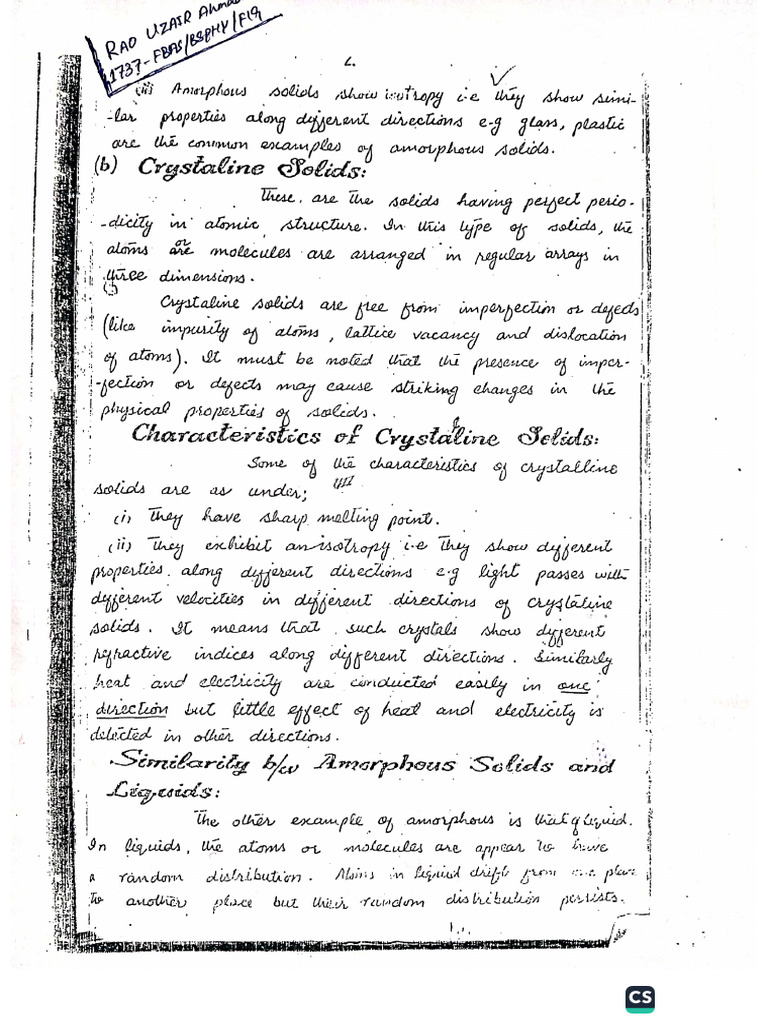 RAO UZAIR Ahmad
1737-FBAS/BSPHY/F19
2.
(ii) Amorphous solids show isotropy i.e they show simi-
-lar properties along different directions e-g glass, plastic
are the common examples of amorphous solids.
(b) Crystaline Solids:
These are the solids having perfect perio-
-dicity in atomic structure. In this type of solids, the
atoms or molecules are arranged in regular arrays in
three dimensions.
Crystaline solids are free from imperfection or defects
(like impurity of atoms, lattice vacancy and dislocation
of atoms). It must be noted that the presence of imper-
-fection or defects may cause striking changes in the
physical properties of solids.
Characteristics of Crystaline Solids:
Some of the characteristics of crystalline
solids are as under;
(i) They have sharp melting point.
(ii) They exhibit anisotropy i.e They show different
properties along different directions e.g light passes with
different velocities in different directions of crystaline
solids. It means that such crystals show different
refractive indices along different directions. Similarly
heat and electricity are conducted easily in one
direction but little effect of heat and electricity is
detected in other directions.
Similarity b/w Amorphous Solids and
Liquids:
The other example of amorphous is that of liquid.
In liquids, the atoms or molecules are appear to have
a random distribution. Atoms in liquid drift from one place
to another place but their random distribution persists.
CS